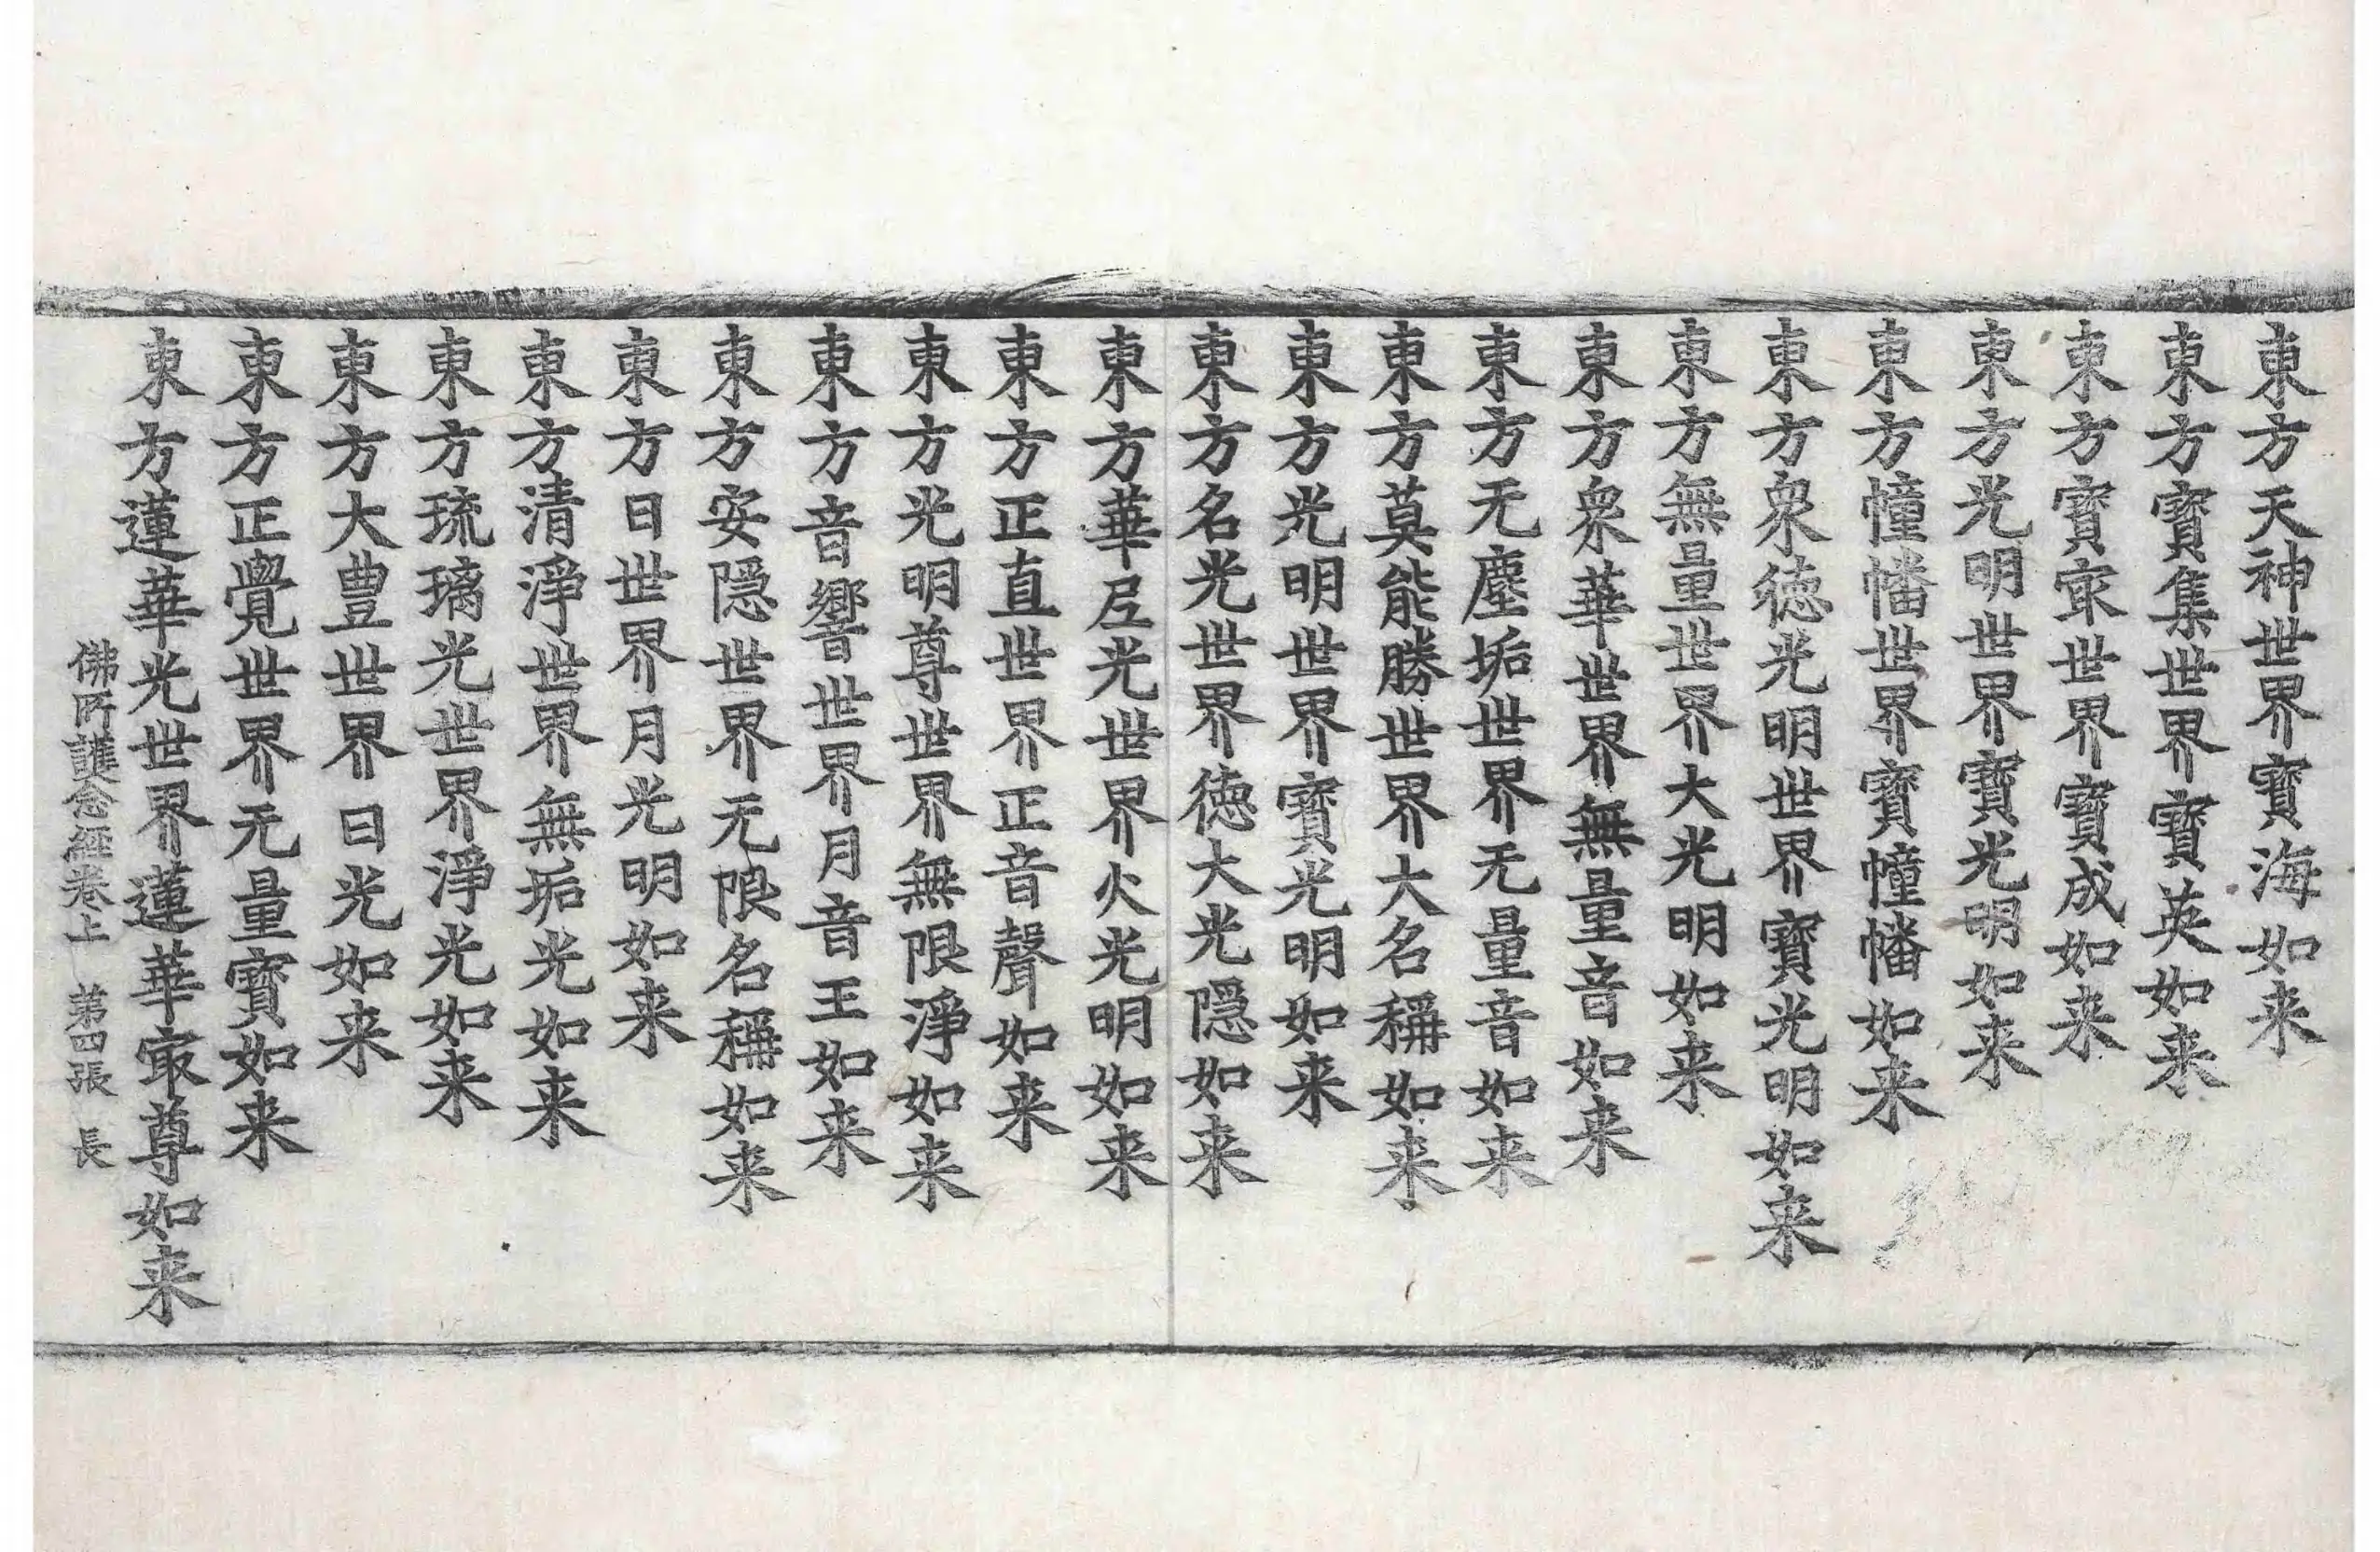 東方天神世界寶海如来
東方寶集世界寶英如来
東方寶㝡世界寶成如来
東方光明世界寶光明如来
東方幢幡世界寶幢幡如来
東方衆徳光明世界寶光明如来
東方無量世界大光明如来
東方衆華世界無量音如来
東方无塵垢世界无量音如来
東方莫能勝世界大名稱如来
東方光明世界寶光明如来
東方名光世界徳大光隱如来
東方華𡱈光世界火光明如来
東方正直世界正音聲如来
東方光明尊世界無限淨如来
東方音響世界月音王如来
東方安隱世界无限名稱如来
東方日世界月光明如来
東方清淨世界無垢光如来
東方琉璃光世界淨光如来
東方大豊世界日光如来
東方正覺世界无量寶如来
東方蓮華光世界蓮華㝡尊如来
佛所護念經卷上 第四張 長